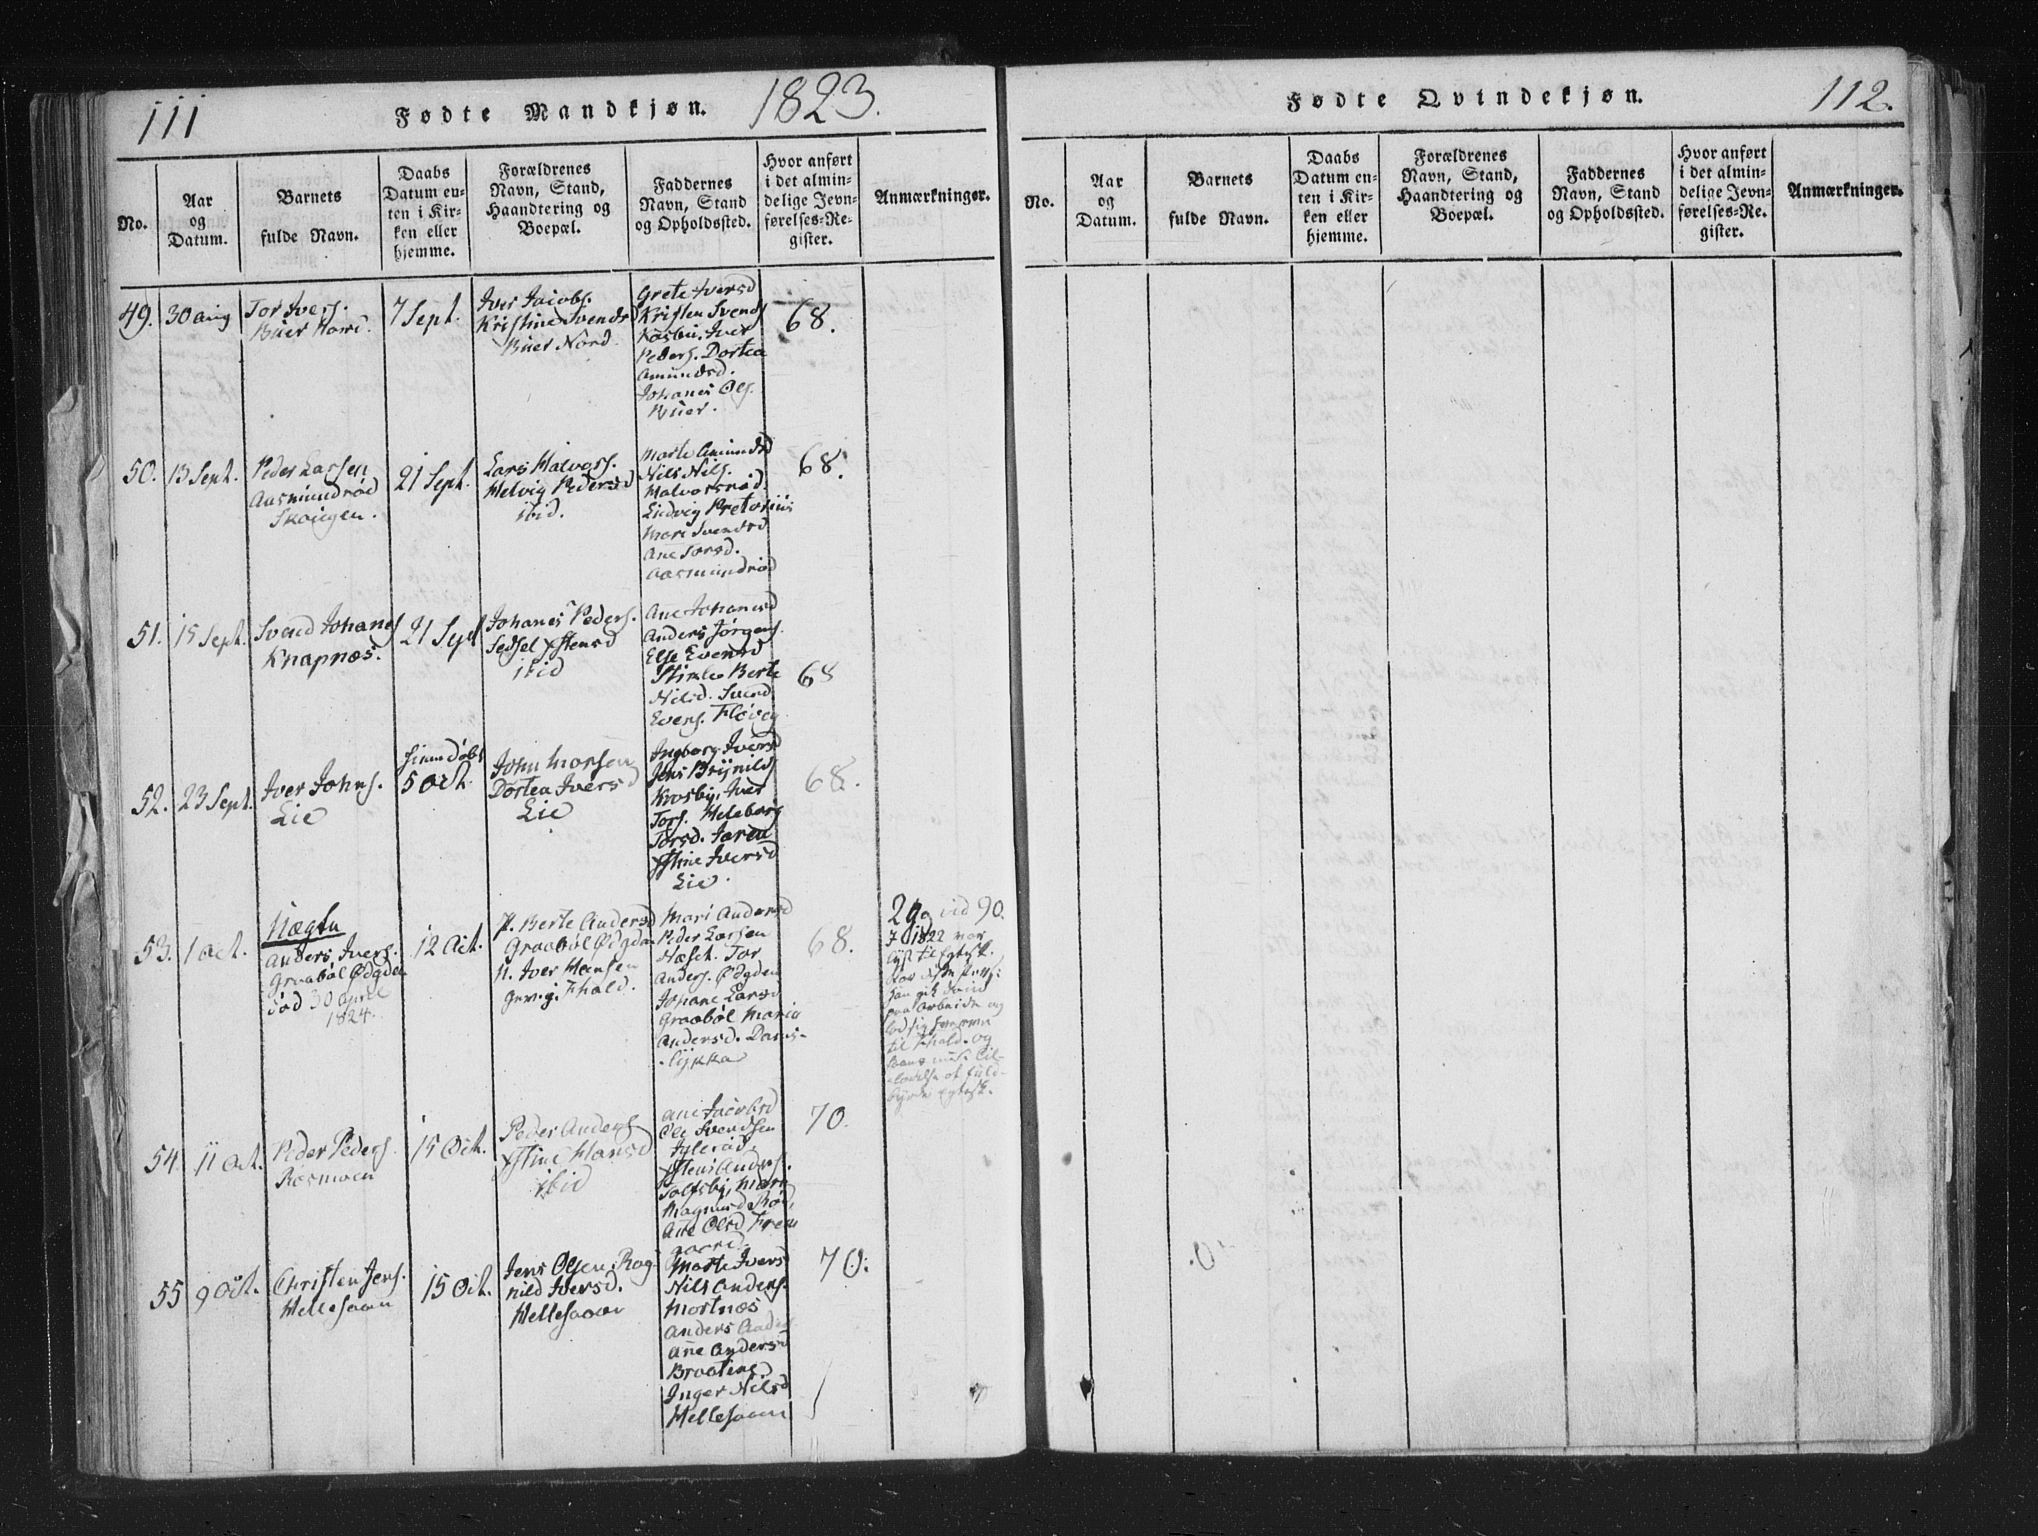 111
Fødte Mandkjøn.
1823.
No.
Aar
og
Datum.
Barnets
fulde Navn.
Daabs
Datum en-
ten i Kir-
ken eller
hjemme.
Forældrenes
Navn, Stand,
Haandtering og
Boepæl.
Faddernes
Navn, Stand
og Opholdssted.
Hvor anført
i det almin-
delige Jevn-
førelses-Re-
gister.
Anmærkninger.
49.
30 aug
Tor Ivers.
Buer Nord.
7 Sept.
Iver Jacobs.
Kristine Svends
Buer Nord.
Grete Iversd
Kristen Svends
Kasbu, Iver
Peders. Dortea
Amundsd.
Johanes Ols.
Buer.
68.
50.
13 Sept.
Peder Larsen
Aasmundrød
Skougen.
21 Sept.
Lars Halvors.
Helvig Pedersd
ibid.
Marte Amundsd
Nils Nils.
Halvorsrød.
Ludvig Pretorius
Mari Svendsd
Ane Torsd.
Aasmundrød
68.
51.
15 Sept.
Svend Johanes
Knapnæs.
21 Sept
Johanes Peders.
Sedsel Ystensd
ibid
Ane Johanesd
Anders Jørgens.
Else Evensd
Berte
Nilsd. Svend
Evens. Fløveg
68
52.
23 Sept.
Iver Johns.
Lie
hiemdøbt
5 oct.
John Morsen
Dortea Iversd
Lie
Ingborg Iversd
Jens Brynilds
Krosby, Iver
Tors. Heleborg
Torsd. Jaren
Ystine Iversd
Lie.
68.
53.
1 oct.
Uægta
Anders Ivers.
Graabøl Ødgden
død 30 april
1824.
12 Oct.
P. Berte Andersd
Graabøl Ødgden
U. Iver Hansen
Fhald.
Mari Andersd
Peder Larsen
Hæsch. Tor
Anders. Ødgden
Johane Larsd
Graabøl Maria
Andersd. Dams-
-lykka
68.
Pag vid 90.
7 1822 var
lyst til Egtesk.
paa Arbeide og
til Fhald. og
byrde Egtesk.
54.
11 oct.
Peder Peders.
Rosmoen
15 Oct.
Peder Anders
Ystine Hansd
ibid
Ane Jacobsd
Ole Svendsen
Igletød,
Ystens Anders.
Tolfsby, Mari
Magnusd Rød,
Ane Olsd Frem
gaard.
70.
55
9 Oct.
Christen Jens.
Hellesaaen
15 Oct.
Jens Olsen, Rag-
nild Iversd.
Hellesaaen
Marte Iversd
Nils Anders.
Mortnæs
Anders Anders
Ane Andersd
Braatene
Inger Nilsd
Hellesaaen
70.
Fødte Qvindekjøn.
112.
No.
Aar
og
Datum.
Barnets
fulde Navn.
Daabs
Datum en-
ten i Kir-
ken eller
hjemme.
Forældrenes
Navn, Stand,
Haandtering og
Boepæl.
Faddernes
Navn, Stand
og Opholdssted.
Hvor anført
i det almin-
delige Jevn-
førelses-Re-
gister.
Anmærkninger.